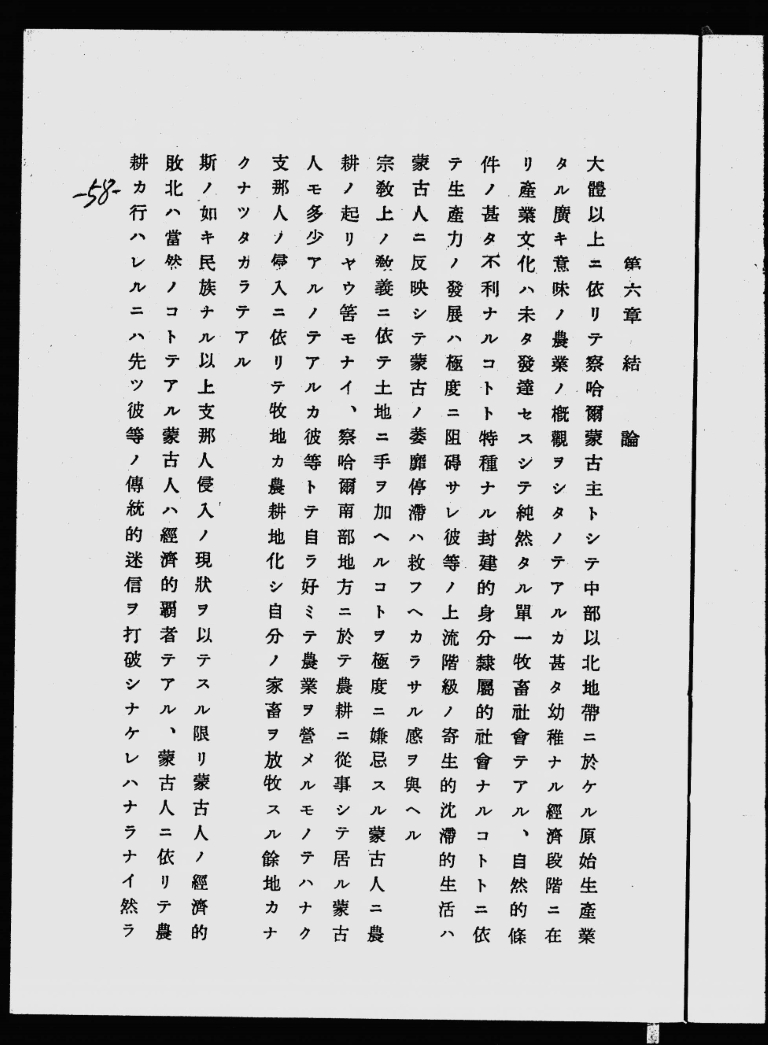 第六章 結 論
大體以上ニ依リテ察哈爾蒙古主トシテ中部以北地帶ニ於ケル原始生產業
タル廣キ意味ノ農業ノ槪觀ヲシタノテアルカ甚タ幼稚ナル經濟段階ニ在
リ產業文化ハ未タ發達セスシテ純然タル單一牧畜社會テアル、自然的條
件ノ甚タ不利ナルコトト特種ナル封建的身分隸屬的社會ナルコトトニ依
テ生產力ノ發展ハ極度ニ阻碍サレ彼等ノ上流階級ノ寄生的沈滯的生活ハ
蒙古人ニ反映シテ蒙古ノ萎靡停滯ハ救フヘカラサル感ヲ與ヘル
宗敎上ノ敎義ニ依テ土地ニ手ヲ加ヘルコトヲ極度ニ嫌忌スル蒙古人ニ農
耕ノ起リヤウ筈モナイ、察哈爾南部地方ニ於テ農耕ニ從事シテ居ル蒙古
人モ多少アルノテアルカ彼等トテ自ラ好ミテ農業ヲ營メルモノテハナク
支那人ノ侵入ニ依リテ牧地カ農耕地化シ自分ノ家畜ヲ放牧スル餘地カナ
クナツタカラテアル
斯ノ如キ民族ナル以上支那人侵入ノ現狀ヲ以テスル限リ蒙古人ノ經濟的
敗北ハ當然ノコトテアル蒙古人ハ經濟的覇者テアル、蒙古人ニ依リテ農
耕カ行ハレルニハ先ツ彼等ノ傳統的迷信ヲ打破シナケレハナラナイ然ラ
-58-